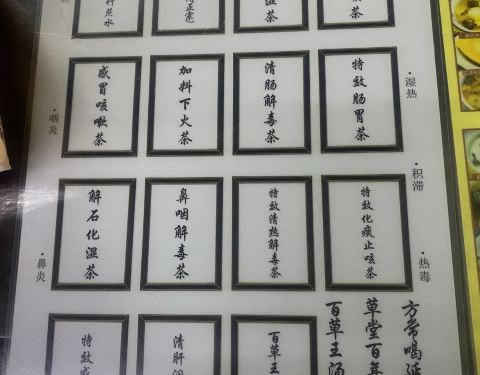 感冒咳嗽茶
加料下火茶
清肠解毒茶
特效肠胃茶
·湿热
·咽炎
解石化湿茶
鼻咽解毒茶
特效清热解毒茶
特效化痰止咳茶
·积滞
·鼻炎
·热毒
特效感
清肝润
百草王
百草王汤
草堂百年
方常喝延